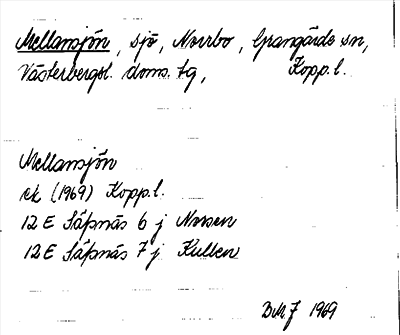 Mellansjön, sjö, Norrbo, Grangärde sn,
Västerbergsl. doms. tg, Kopp.l.
Mellansjön
ek (1969) Kopp.l.
12 E Säfsnäs 6 j Norsen
12 E Säfsnäs 7 j Kullen
1969